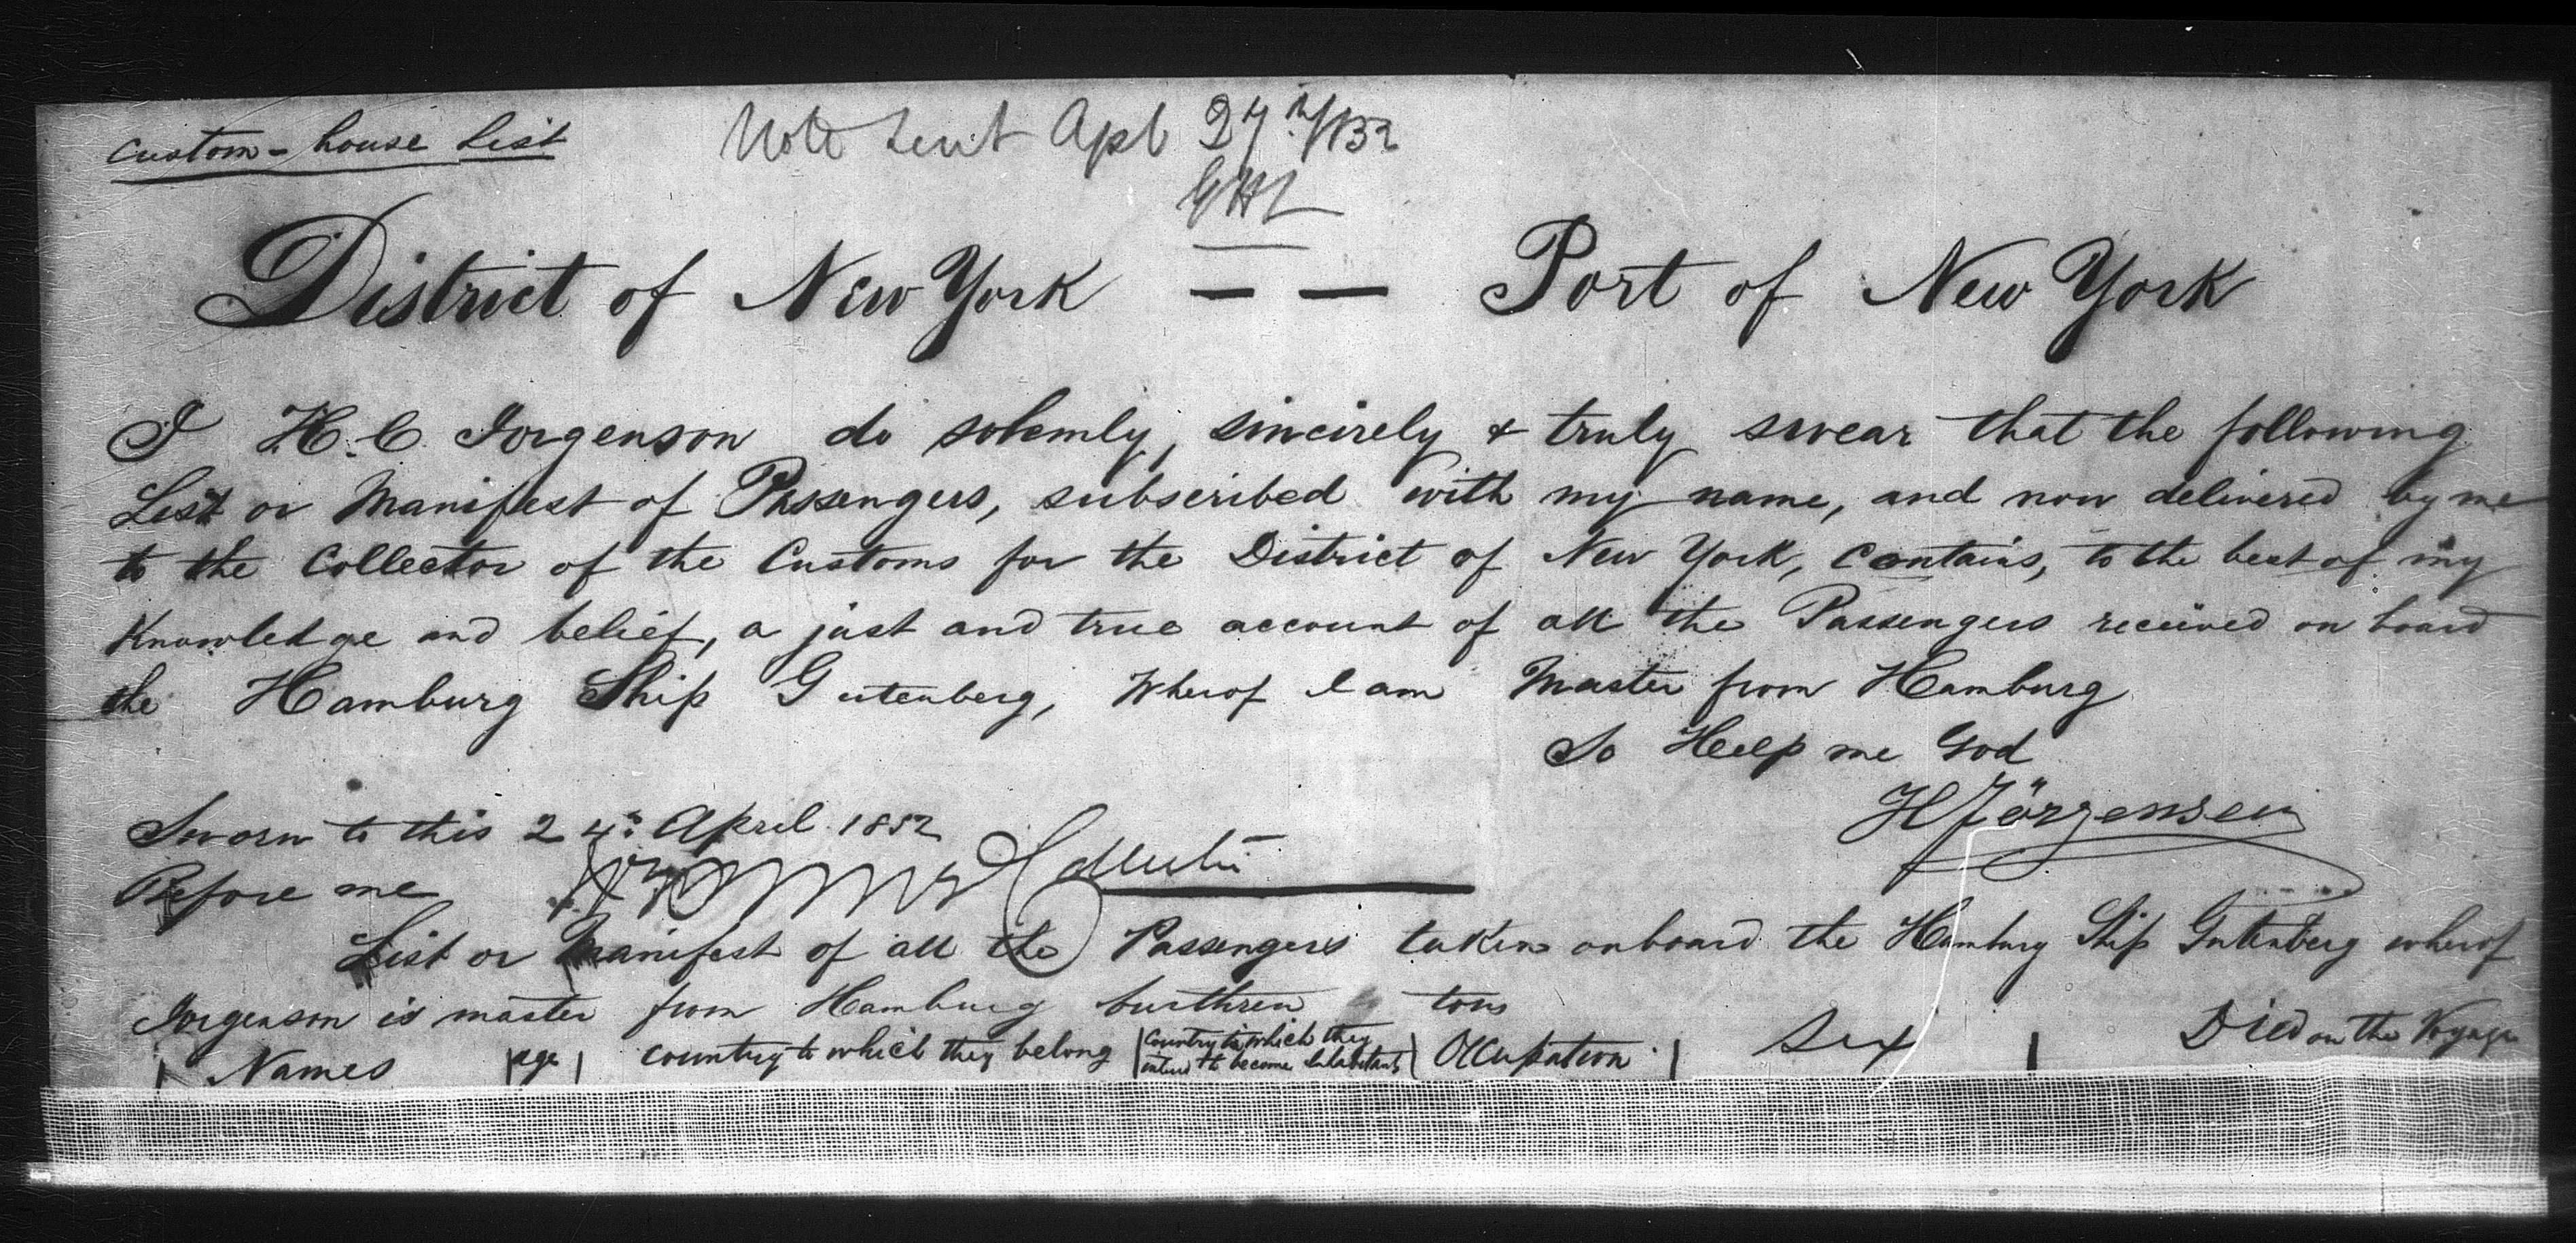 Custom-house List
Note sent Apl 27th/52
GHL
District of New York — — Port of New York
I H. C. Jorgenson do solemly, sincirely & truly swear that the following
List or Manifest of Passengers, subscribed with my name, and now delivered by me
to the Collector of the Customs for the District of New York, Contains, to the best of my
Knowledge and belief, a just and true account of all the Passengers received on board
the Hamburg Ship Gutenberg, Wherof I am Master from Hamburg
So Help me God
HJörgensen
Sworn to this 24th April 1852
Before me
List or Manifest of all the Passengers taken onboard the Hamburg Ship Gutenberg wherof
Jorgenson is master from Hamburg burthren tons
Names | age | country to which they belong | Country to which they intend to become Inhabitants | Occupation | Sex | Died on the Voyage